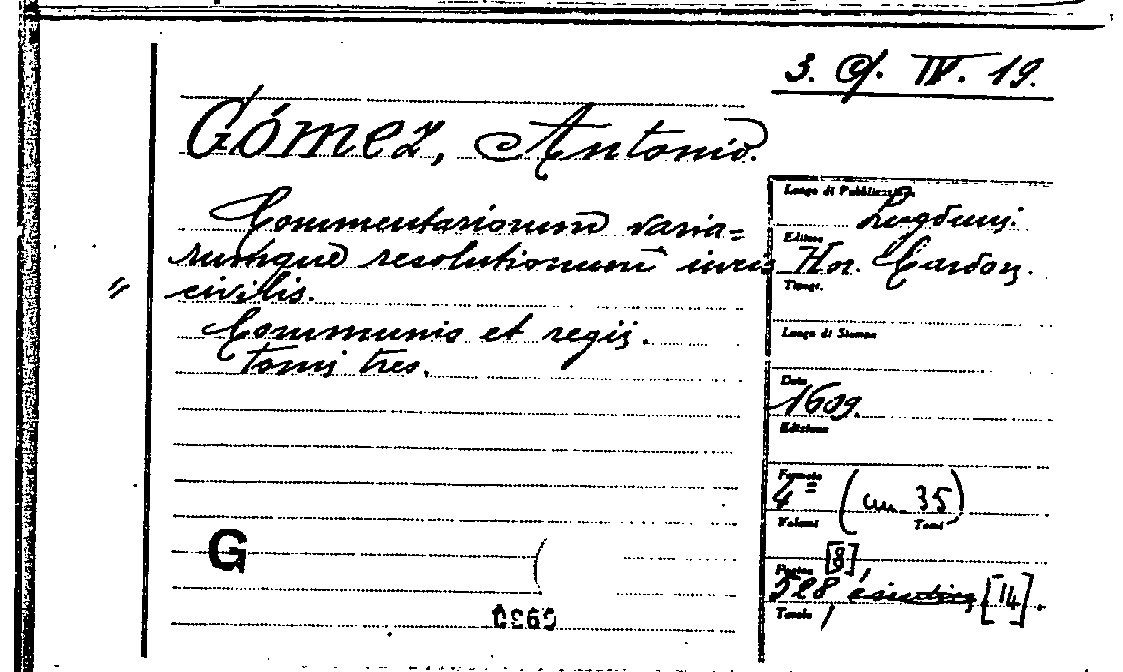 3. G. IV. 19.
Gómez, Antonio.
Commentariorum varia=
rumque resolutionum iuris
civilis.
Communis et regij.
Tomi tres.
Luogo di Pubblicazione
Lugduni.
Editore
Hor. Cardon.
Tipogr.
Luogo di Stampa
Data
1609.
Edizione
Formato
4º (cm. 35)
Volumi Tomi
Pagine [8],
528, [14].
Tavole
G